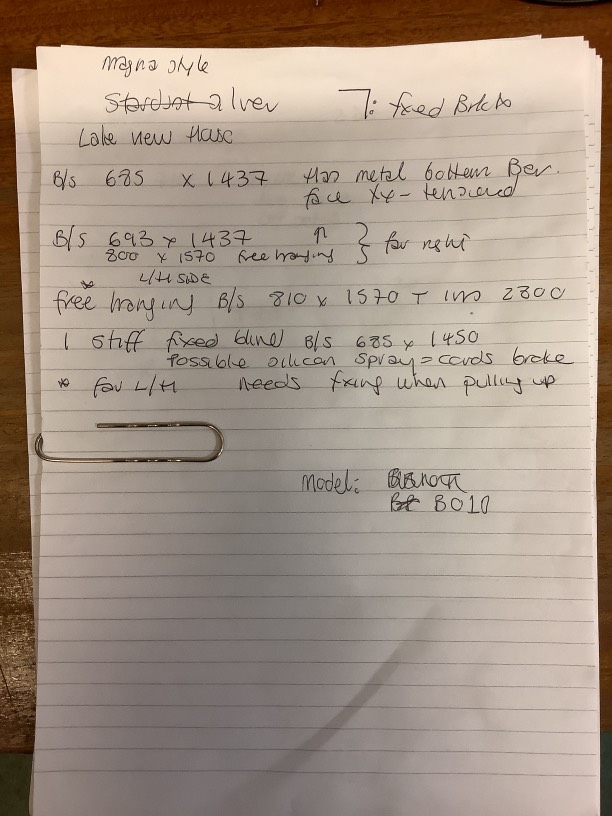 magna style
Stardust silver 7: fixed Brkts
Lake new Hausc
B/s 685 x 1437 Has metal bottom Ber.
face xx - tensioned
B/S 693 x 1437 } far right
800 x 1570 free hanging
L/H SIDE
* free hanging B/S 810 x 1570 T 2300
1 stiff fixed blind B/S 685 x 1450
Possible silicon spray = cords broke
* far L/H needs fixing when pulling up
Model:
B010